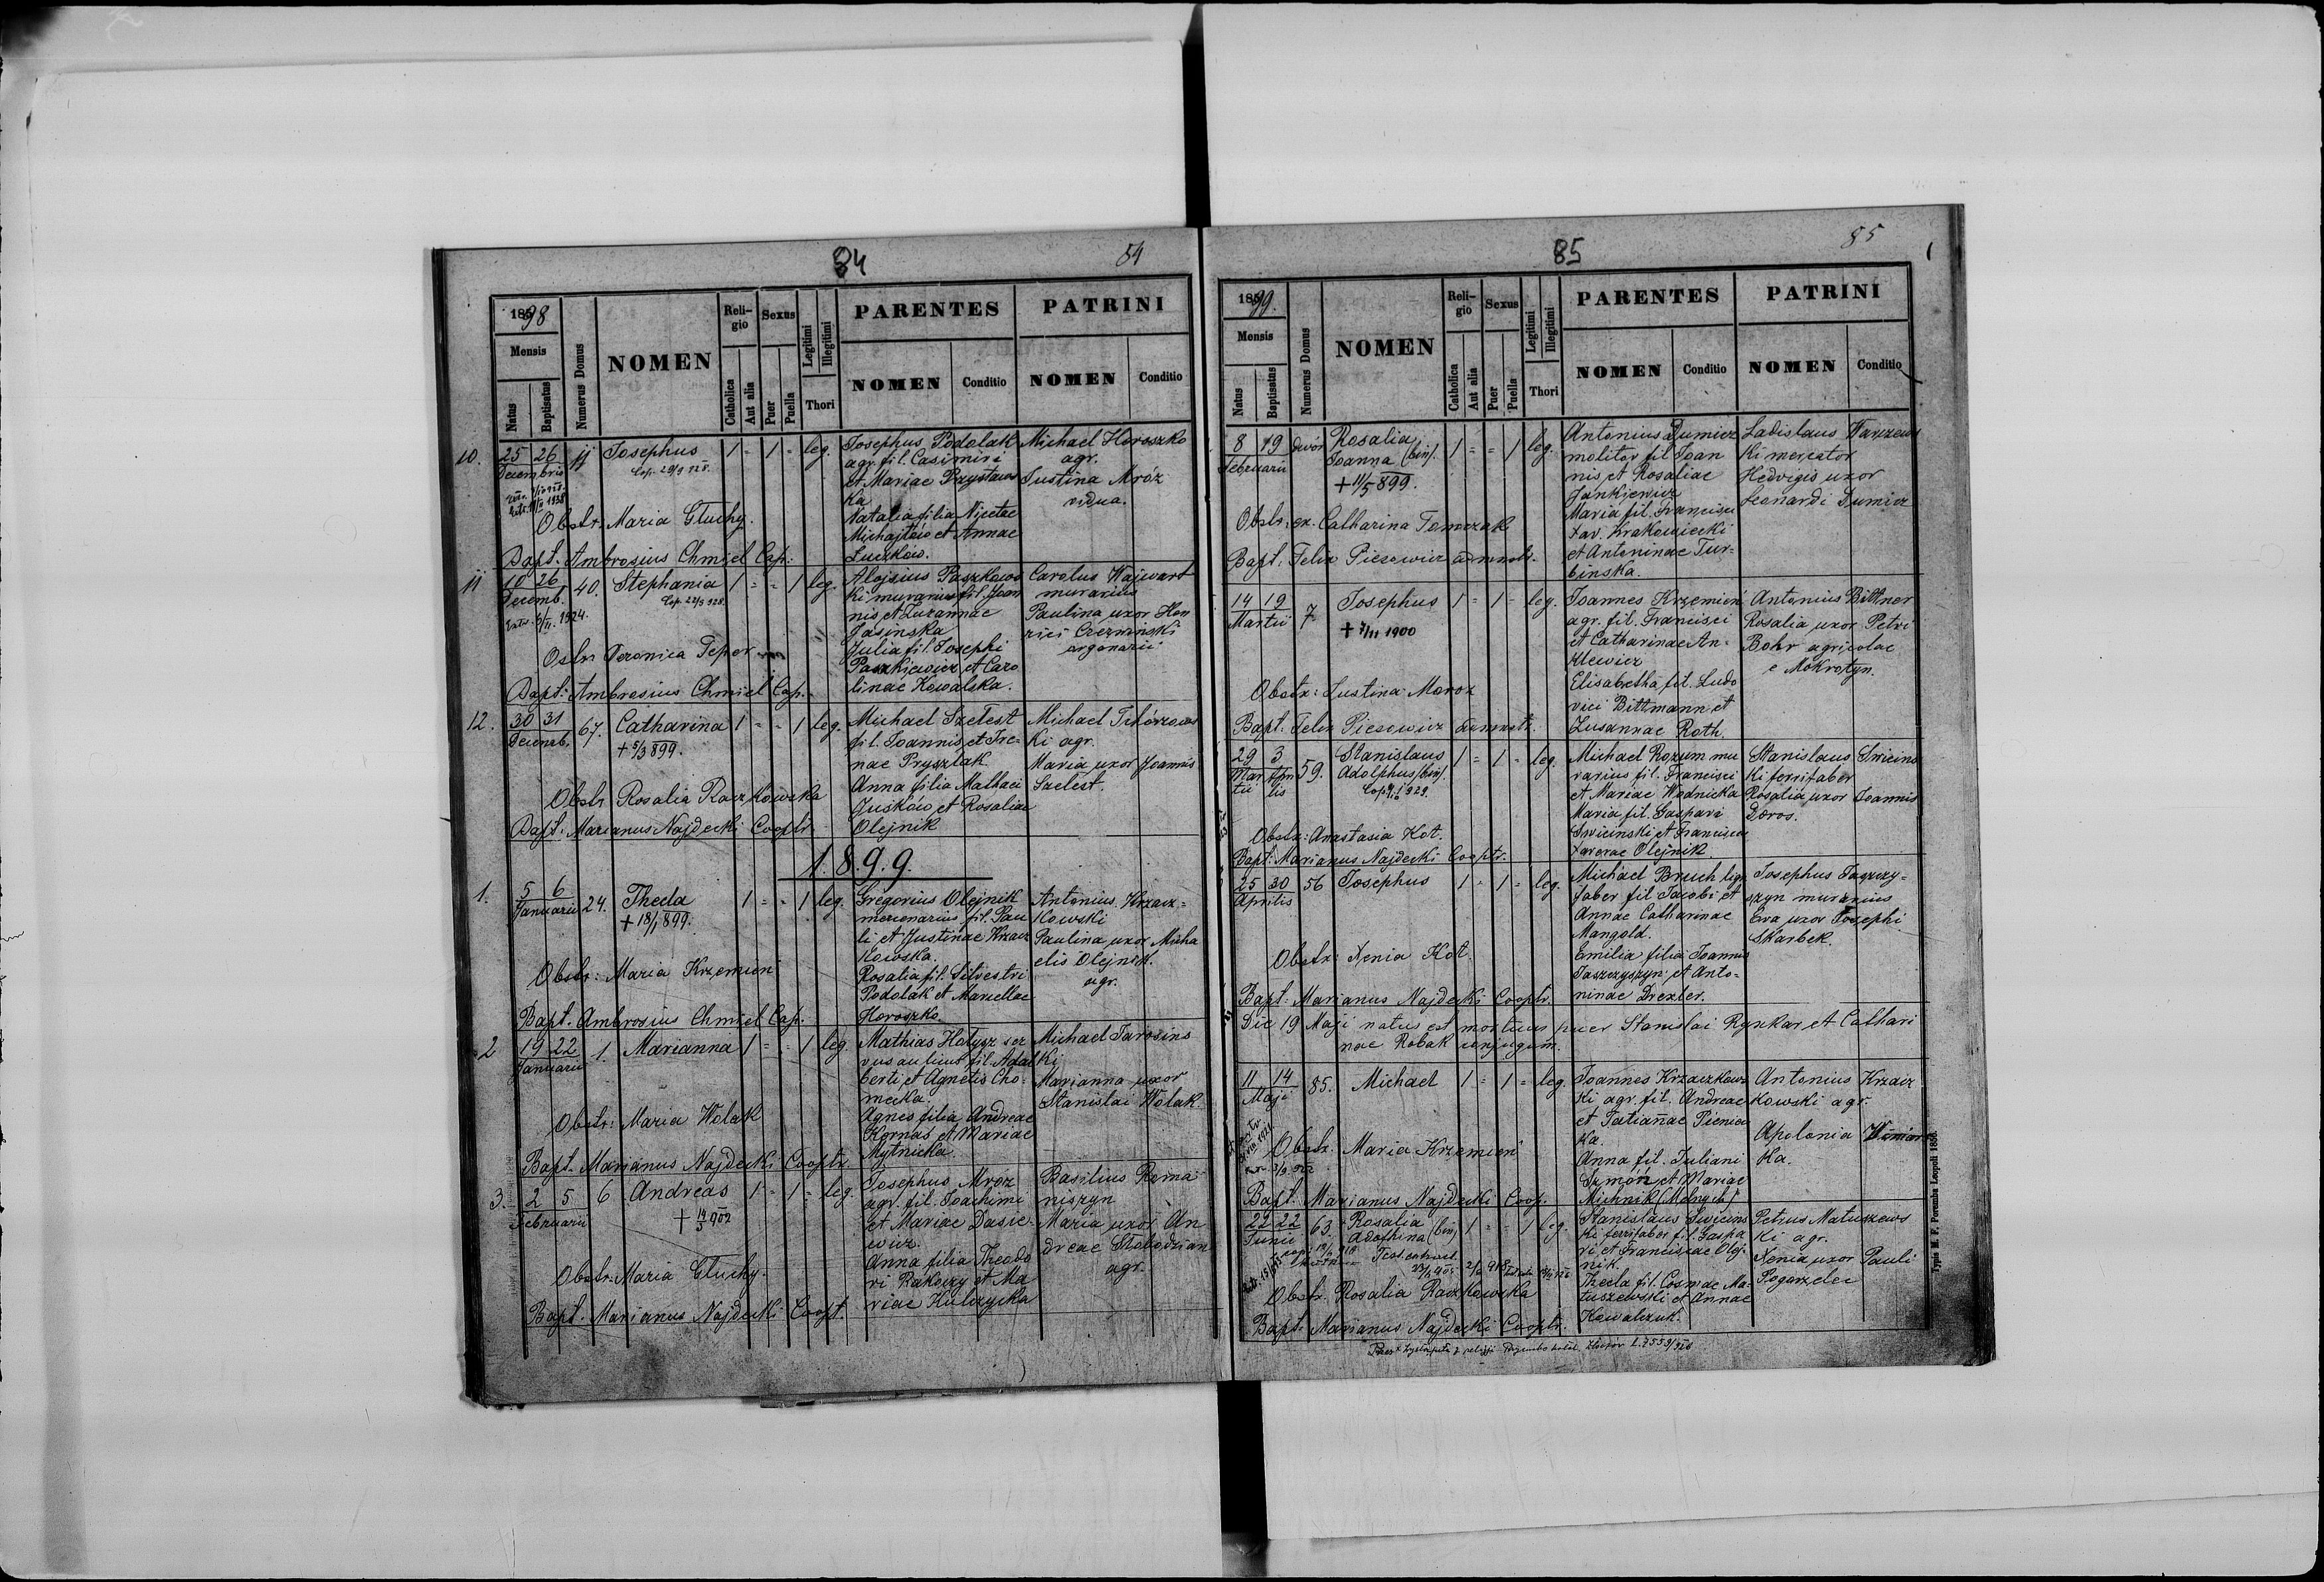 84
84
1898
Mensis
Natus
Baptisatus
Numerus Domus
NOMEN
Religio
Catholica
Aut alia
Sexus
Puer
Puella
Legitimi
Illegitimi
Thori
PARENTES
NOMEN
Conditio
PATRINI
NOMEN
Conditio
10.
25 26
Decembris
11
Josephus
1 = 1 - leg.
Josephus Podolak
agr. fil. Casimiri
et Mariae Przystaws
ka
Natalia filia Nicetae
Michajłów et Annae
Luczków.
Michael Horoszko
agr.
Justina Mróz
vidua.
Obstr. Maria Głuchy.
Bapt. Ambrosius Chmiel Cap.
11
10 26
Decemb.
40.
Stephania
Cop. 22/3 928.
1 = - 1 leg.
Alojsius Paszkows
ki murarius fil. Joan
nis et Zuzannae
Jasinska
Julia fil. Josephi
Paszkiewicz et Caro
linae Kowalska.
Carolus Wajwart
murarius
Paulina uxor Hen
rici Czerwinski
organarii
Obstr. Veronica Teper
Bapt: Ambrosius Chmiel Cap.
12.
30 31
Decemb.
67.
Catharina
+ 5/3 899.
1 = - 1 leg.
Michael Szelest
fil. Joannis et Ire-
nae Pryszlak
Anna filia Mathaei
Juśków et Rosaliae
Olejnik
Michael Tchórzows
ki agr.
Maria uxor Joannis
Szelest.
Obstr. Rosalia Raczkowska
Bapt: Marianus Najdecki Cooptr.
1.8.9.9.
1.
5 6
Januarii
24.
Thecla
+ 18/1 899.
1 = - 1 leg.
Gregorius Olejnik
mercenarius fil. Pau
li et Justinae Krzacz
kowska.
Rosalia fil. Silvestri
Podolak et Marcellae
Horoszko.
Antonius Krzacz=
kowski
Paulina uxor Micha
elis Olejnik.
agr.
Obstr: Maria Krzemień
Bapt. Ambrosius Chmiel Cap.
2
19 22
Januarii
1.
Marianna
1 = - 1 leg.
Mathias Hołysz ser
vus aulicus fil. Adal
berti et Agnetis Cho-
mecka.
Agnes filia Andreae
Kornas et Mariae
Mytnicka.
Michael Jarosins
ki
Marianna uxor
Stanislai Wolak.
Obstr: Maria Wolak
Bapt. Marianus Najdecki Cooptr.
3.
2 5
Februarii
6
Andreas
+ 14/3 902
1 = 1 - leg.
Josephus Mróz
agr. fil. Joachimi
et Mariae Dasie-
wicz.
Anna filia Theodo
ri Rakoczy et Ma
riae Kulczycka
Basilius Roma
niszyn
Maria uxor An
dreae Słobodzian
agr.
Obstr: Maria Głuchy.
Bapt. Marianus Najdecki Coopt.
85
85
1899.
Mensis
Natus
Baptisatus
Numerus Domus
NOMEN
Religio
Catholica
Aut alia
Sexus
Puer
Puella
Legitimi
Illegitimi
Thori
PARENTES
NOMEN
Conditio
PATRINI
NOMEN
Conditio
8 19
Februarii
dwór
Rosalia
Joanna (bin).
+ 11/5 899.
1 = = 1 leg.
Antonius Dumicz
molitor fil. Joan
nis et Rosaliae
Jankiewicz
Maria fil. Francisci
Xav. Krakowiecki
et Antoninae Tur-
binska.
Ladislaus Warszews
ki mercator
Hedvigis uxor
Leonardi Dumicz
Obstr. ex. Catharina Tomczak
Bapt: Felix Piesowicz admnstr.
14 19
Martii
7
Josephus
+ 7/11 1900
1 = 1 = leg.
Joannes Krzemień
agr. fil. Francisci
et Catharinae An-
klewicz
Elisabetha fil. Ludo
vici Bittmann et
Zusannae Roth.
Antonius Bittner
Rosalia uxor Petri
Bohr agricolae
e Mokrotyn.
Obstr: Justina Moroz
Bapt: Felix Piesowicz admnstr.
29 3
Martii Aprilis
59.
Stanislaus
Adolphus (bin).
1 = 1 - leg.
Michael Rozum mu
rarius fil. Francisci
et Mariae Wodnicka
Maria fil. Gaspari
Swicinski et Francisca
Xaverae Olejnik.
Stanislaus Swicins
ki ferrifaber
Rosalia uxor Joannis
Doros.
Obstr: Anastasia Kot.
Bapt: Marianus Najdecki Cooptr.
25 30
Aprilis
56
Josephus
1 = 1 = leg.
Michael Bruch lign
faber fil Jacobi et
Annae Catharinae
Mangold.
Emilia filia Joannis
Jaszczyszyn et Anto-
ninae Drexler.
Josephus Jaszczy=
szyn murarius
Eva uxor Josephi
Skarbek.
Obstr: Xenia Kot.
Bapt: Marianus Najdecki Cooptr.
Die 19 Maji natus est mortuus puer Stanislai Rynkar et Cathari
nae Robak conjugum.
11 14
Maji
85.
Michael
1 = 1 = leg.
Joannes Krzaczkows
ki agr. fil. Andreae
et Tatiannae Pienia
ka.
Anna fil. Juliani
Szmoń et Mariae
Michnik (Melnych)
Antonius Krzacz
kowski agr.
Apolonia
ka.
Obstr. Maria Krzemień
Bapt: Marianus Najdecki Coop.
22 22
Junii
63.
Rosalia
Adolphina (bin)
1 = = 1 leg.
Stanislaus Swicins
ki ferrifaber fil. Gaspa
ri et Franciscae Olej-
nik.
Thecla fil. Cosmae Ma-
tuszewski et Annae
Kowalczuk.
Petrus Matuszews
ki agr.
Xenia uxor Pauli
Pogorzelec
Obstr. Rosalia Raczkowska
Bapt: Marianus Najdecki Cooptr.
Typis M. F. Poremba Leopoli